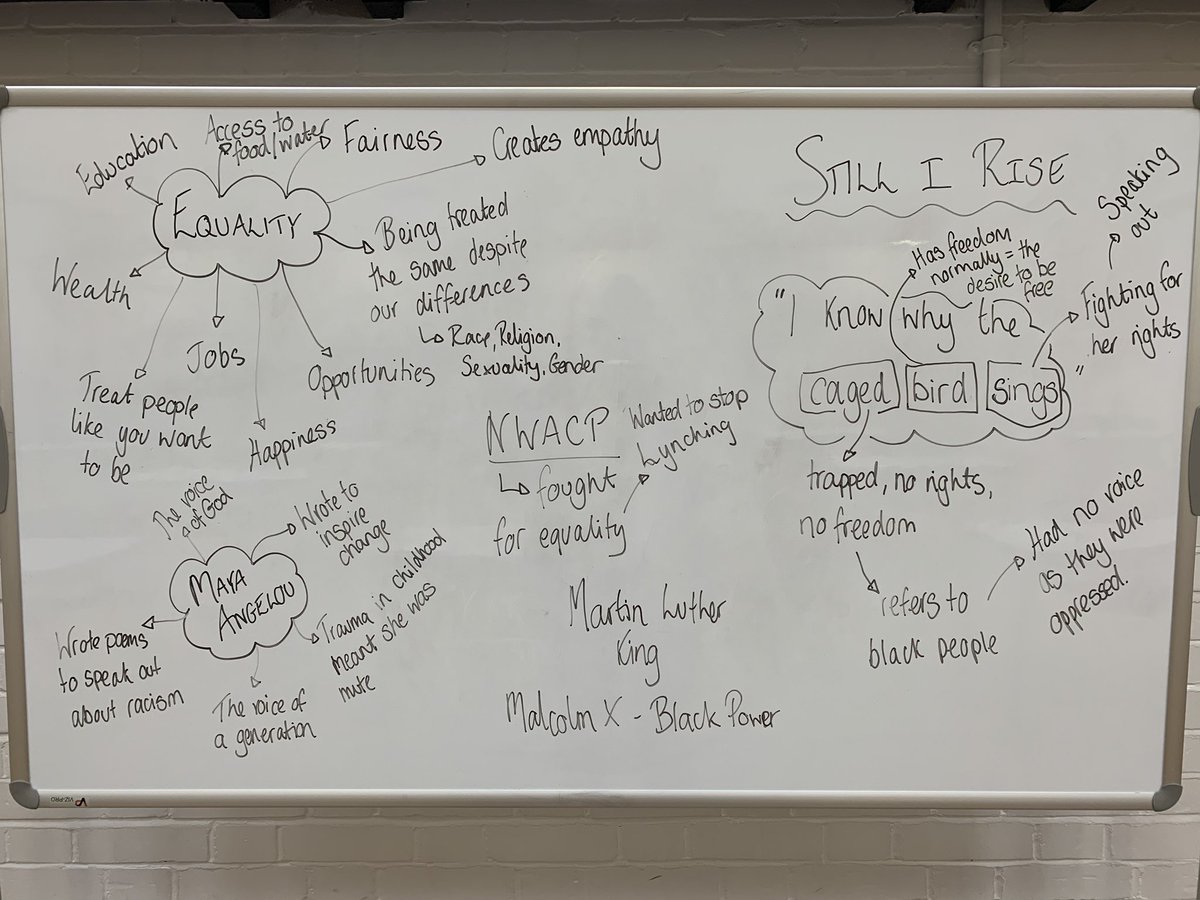 Education
Access to
food/water
Fairness
Creates empathy
EQUALITY
Being treated
the same despite
our differences
Race, Religion,
Sexuality, Gender
Wealth
Jobs
Opportunities
Treat people
like you want
to be
Happiness
The voice
of God
Wrote to
inspire
change
MAYA
ANGELOU
Trauma in childhood
meant she was
mute
Wrote poems
to speak out
about racism
The voice of
a generation
NWACP
fought
for equality
Wanted to stop
Lynching
Martin Luther
King
Malcolm X - Black Power
STILL I RISE
Speaking
out
Has freedom
normally = the
desire to be
free
"I know why the
caged bird sings"
Fighting for
her rights
trapped, no rights,
no freedom
refers to
black people
Had no voice
as they were
oppressed.
VIZ-PRO